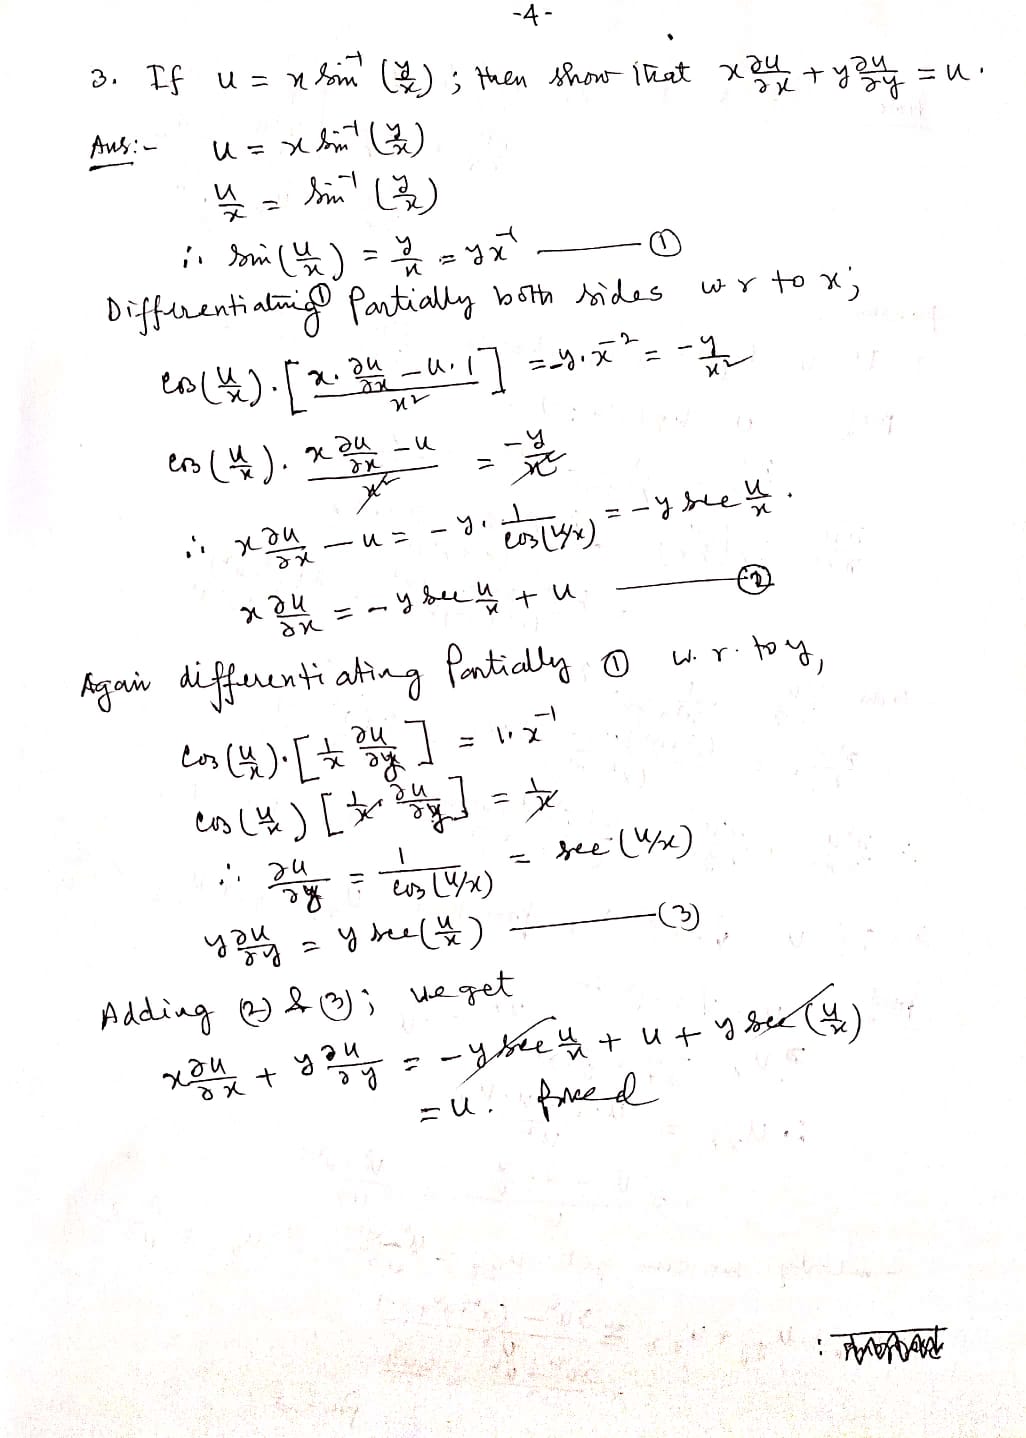 -4-
3. If u = x sin⁻¹ (y/x) ; then show that x ∂u/∂x + y ∂u/∂y = u.
Ans:- u = x sin⁻¹ (y/x)
u/x = sin⁻¹ (y/x)
∴ sin(u/x) = y/x = yx⁻¹ ——— ①
Differentiating ① Partially both sides w r to x;
cos(u/x) · [x · ∂u/∂x − u · 1 / x²] = −y · x⁻² = −y/x²
cos(u/x) · x ∂u/∂x − u / x² = −y/x²
∴ x ∂u/∂x − u = − y · 1/cos(u/x) = −y sec u/x .
x ∂u/∂x = − y sec u/x + u ——— ②
Again differentiating Partially ① w. r. to y,
cos(u/x) · [1/x ∂u/∂y] = 1 · x⁻¹
cos(u/x) [1/x ∂u/∂y] = 1/x
∴ ∂u/∂y = 1/cos(u/x) = sec (u/x)
y ∂u/∂y = y sec(u/x) ——— (3)
Adding (2) & (3); we get
x ∂u/∂x + y ∂u/∂y = − y sec u/x + u + y sec (u/x)
= u. Proved